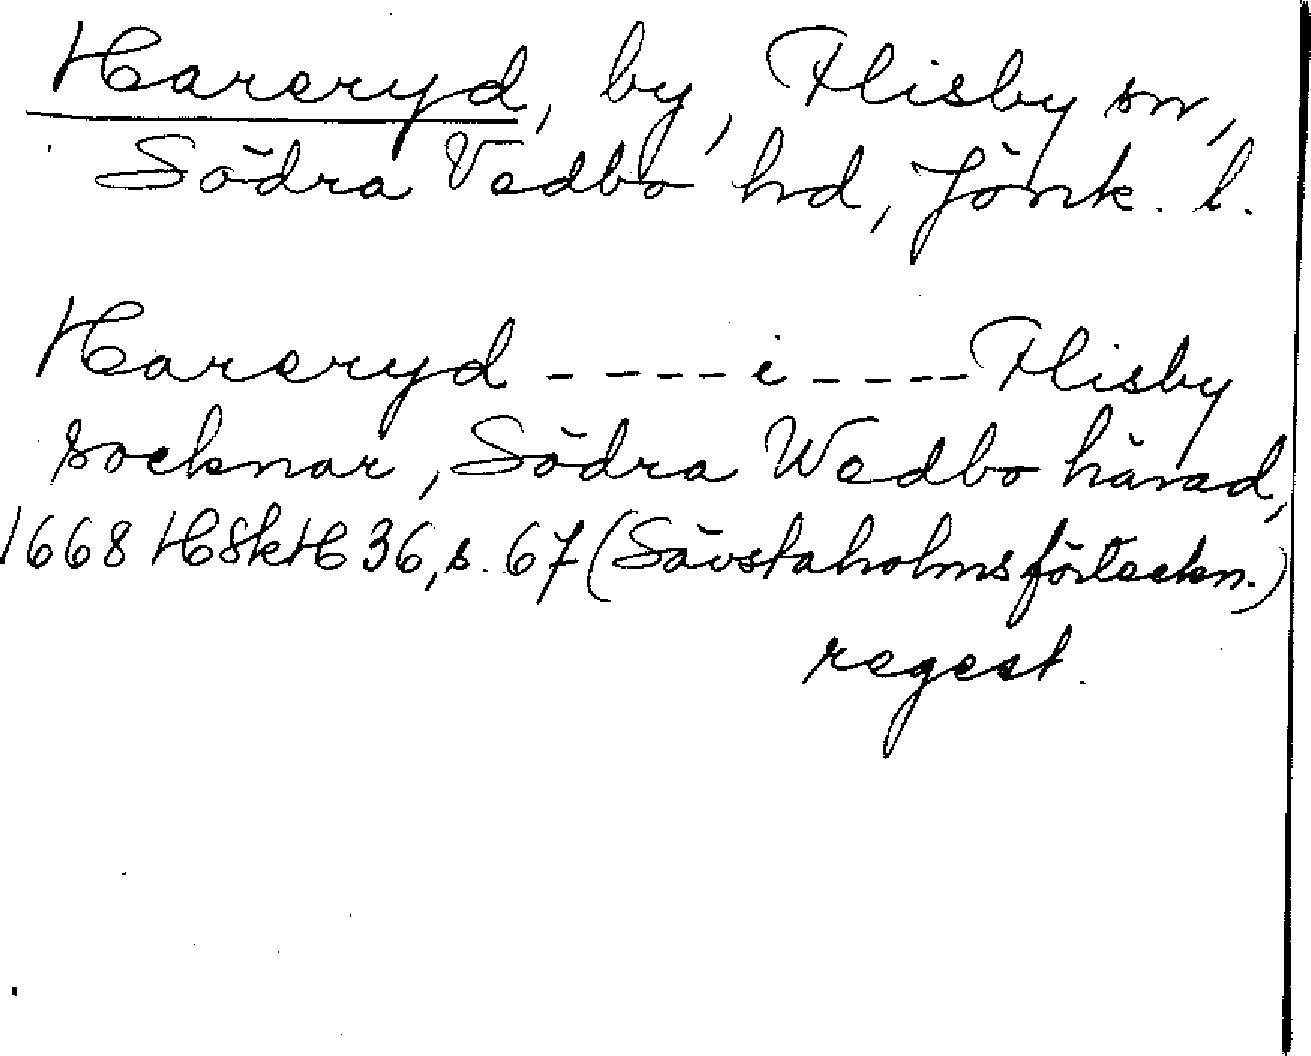 Hareryd, by, Flisby sn,
Södra Vedbo hd, Jönk. l.
Hareryd ---- i ---- Flisby
socknar, Södra Wedbo härad,
1668 HSkH 36, s. 67 (Sävstaholmsförteckn.)
regest.